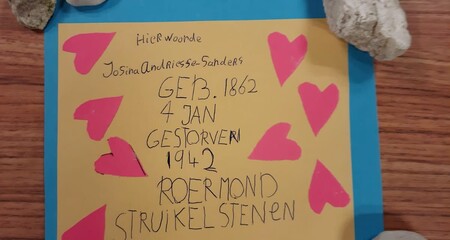 Hier woonde
Josina Andriesse-Sanders
GEB. 1862
4 JAN
GESTORVEN
1942
ROERMOND
STRUIKELSTENEN